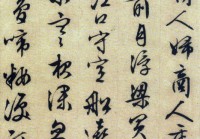 商人婦商人
前月浮梁買
江口守空船遶
寒夜深忽
夢啼粧淚